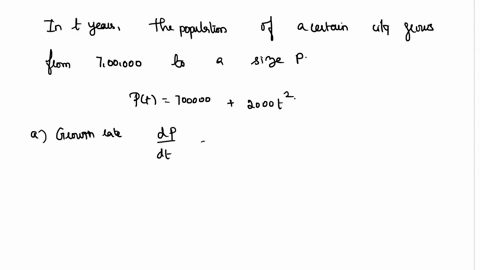 In t years, the population of a certain city grows
from 7,00,000 to a size P.
P(t) = 700000 + 2000t².
a) Growth rate dP/dt -